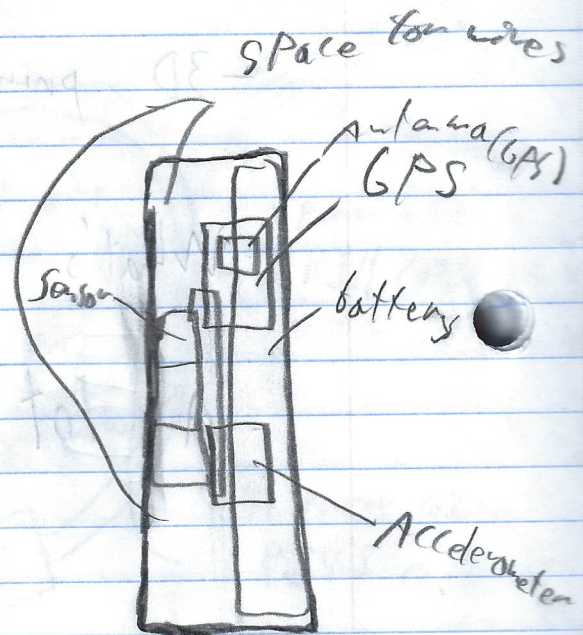 Space for wires
Antanna (GPS)
GPS
Sensor
battery
Accelerometer